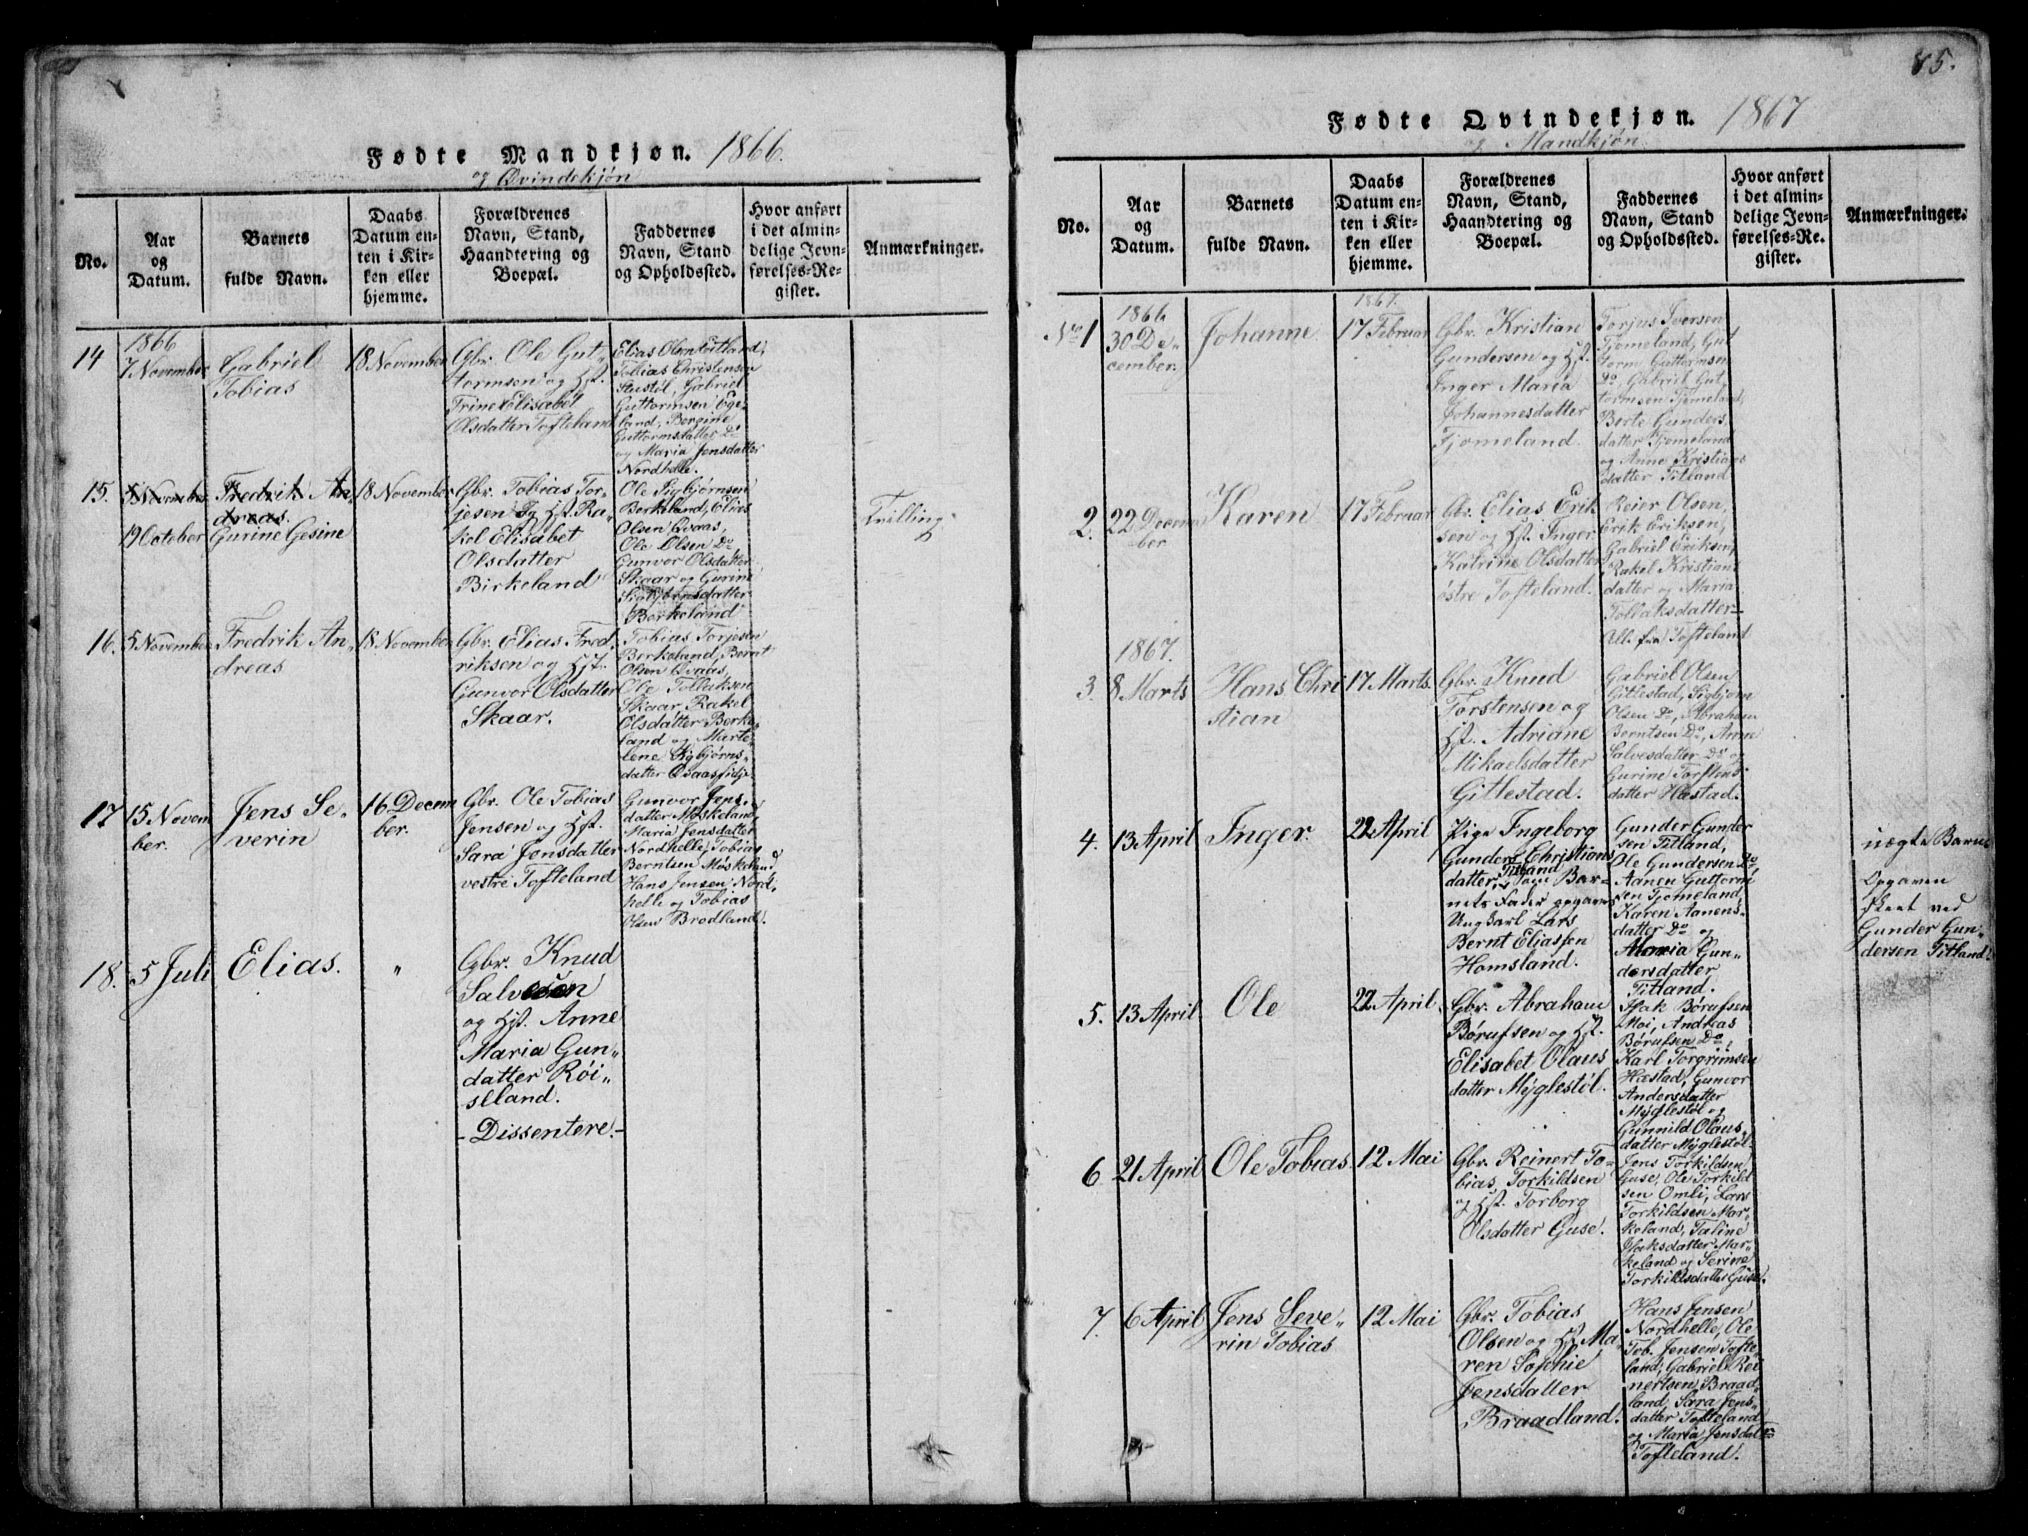 85.
Fødte Mandkjøn. 1866.
og Qvindekjøn
No.
Aar
og
Datum.
Barnets
fulde Navn.
Daabs
Datum en-
ten i Kir-
ken eller
hjemme.
Forældrenes
Navn, Stand,
Haandtering og
Boepæl.
Faddernes
Navn, Stand
og Opholdssted.
Hvor anført
i det almin-
delige Jevn-
førelses-Re-
gister.
Anmærkninger.
14
1866
7 November
Gabriel
Tobias
18 November
Gbr. Ole Gut„
tormsen og Hst.
Trine Elisabet
Olsdatter Tofteland
Elias Olsen Titland,
Tobias Christensen
Stustöl, Gabriel
Guttormsen Ege„
land, Bergine
Guttormsdatter Do
og Maria Jensdatter
Nordhelle.
15.
5 November
19 October
Fredrik An„
dreas.
Gurine Gesine
18 November
Gbr. Tobias Tor„
jesen og Hst. Ra„
kel Elisabet
Olsdatter
Birkeland
Ole Sigbjørnsen
Berkeland, Elias
Olsen Qvaas,
Ole Olsen Do
Gunvor Olsdatter
Skaar og Gurine
Sigbjørnsdatter
Berkeland
Tvilling.
16.
5 November
Fredrik An„
dreas
18 November
Gbr. Elias Fred„
riksen og Hst.
Gunvor Olsdatter
Skaar.
Tobias Torjesen
Berkeland, Bernt
Olsen Qvaas,
Ole Tollaksen
Skaar Rakel
Olsdatter Berke„
land og Marte„
lene Sigbjørns„
datter Qvaasfidje
17
15 Novem
ber.
Jens Se„
verin
16 Decem
ber.
Gbr. Ole Tobias
Jensen og Hst.
Sara Jensdatter
vestre Tofteland
Gunvor Jens„
datter Møskeland,
Maria Jensdatter
Nordhelle, Tobias
Berntsen Møskeland
Hans Jensen Nord„
helle og Tobias
Olsen Brodland.
18.
5 Juli
Elias.
„
Gbr. Knud
Salvesen
og Hst. Anne
Maria Gun„
datter Röi„
seland.
- Dissentere. -
Fødte Qvindekjøn. 1867
og Mandkjøn.
No.
Aar
og
Datum.
Barnets
fulde Navn.
Daabs
Datum en-
ten i Kir-
ken eller
hjemme.
Forældrenes
Navn, Stand,
Haandtering og
Boepæl.
Faddernes
Navn, Stand
og Opholdssted.
Hvor anført
i det almin-
delige Jevn-
førelses-Re-
gister.
Anmærkninger.
No 1
1866
30 De„
cember.
Johanne
1867.
17 Februar
Gbr. Kristian
Gundersen og Hst.
Inger Maria
Johannesdatter
Tjomeland.
Torjus Iversen
Tjomeland, Gut
torm Guttormsen
Do, Gabriel Gut„
tormsen Tjomeland,
Berte Gunders„
datter Tjomeland
og Anne Kristians
datter Titland
2.
22 Decem
ber
Karen
17 Februar
Gbr. Elias Erik
sen og Hst. Inger
Katrine Olsdatter
østre Tofteland.
Reier Olsen,
Erik Eriksen,
Gabriel Eriksen,
Rakel Kristians
datter og Maria
Tollaksdatter
Alle fra Tofteland
3.
1867.
8 Marts
Hans Chri
stian
17 Marts.
Gbr. Knud
Torstensen og
Hst. Adriane
Mikaelsdatter
Gitlestad.
Gabriel Olsen
Gitlestad, Sigbjørn
Olsen Do, Abraham
Berntsen Do, Anne
Salvesdatter Do og
Gurine Torstens„
datter Hæstad.
4.
13 April
Inger.
22 April
Pige Ingeborg
Gunders Christians
datter Titland
, som Bar„
nets Fader opgaves
Ungkarl Lars
Bernt Eliassen
Homsland.
Gunder Gunder
sen Titland,
Ole Gundersen Do
Aanen Guttorm
sen Tjomeland,
Karen Aanens„
datter Do og
Maria Gun„
dersdatter
Titland.
uægte Barn
Opgaven
skeet ved
Gunder Gun„
dersen Titland.
5.
13 April
Ole
22 April
Gbr. Abraham
Børufsen og Hst.
Elisabet Olaus
datter Myglestöl.
Isak Børufsen
Moi, Andreas
Børufsen Do,
Karl Torgrimsen
Hæstad, Gunvor
Andersdatter
Myglestöl og
Gunnild Olaus„
datter Myglestöl
6
21 April
Ole Tobias
12 Mai
Gbr. Reinert To„
bias Torkildsen
og Hst. Torborg
Olsdatter Guse.
Jens Torkildsen
Guse, Ole Torkild
sen Omli, Lars
Torkildsen Mar„
keland, Taline
Isaksdatter Mar„
keland og Serine
Torkildsdatter Guse.
7.
6 April
Jens Seve„
rin Tobias
12 Mai
Gbr. Tobias
Olsen og Hst. Ma„
ren Sophie
Jensdatter
Braadland.
Hans Jensen
Nordhelle, Ole
Tob. Jensen Tofte„
land, Gabriel Rei
nertsen Braad„
land, Sara Jens„
datter Tofteland
og Maria Jensdat„
Tofteland.